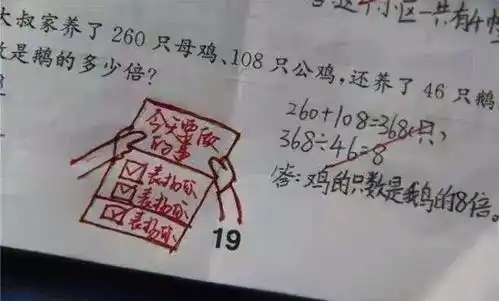 这个小区一共有4
大叔家养了 260 只母鸡、108 只公鸡,还养了 46 只鹅
数是鹅的多少倍?
260+108=368(只)
368÷46=8
答:鸡的只数是鹅的8倍。
今天要做
的事
表扬你
表扬你
表扬你
19